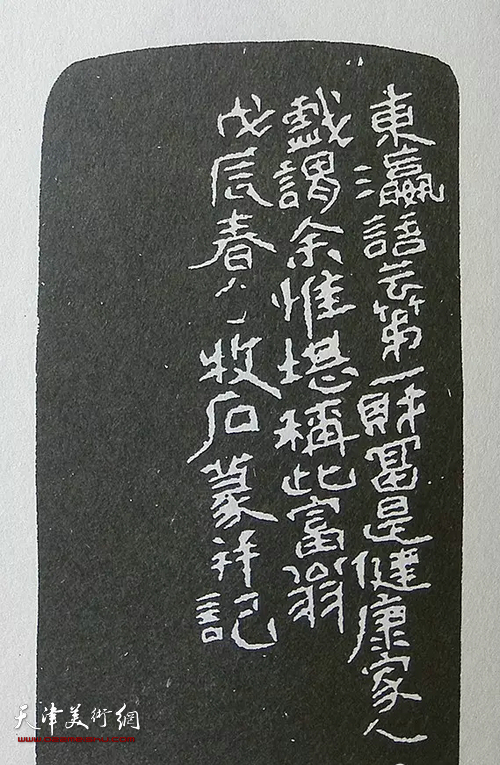 東瀛語云第一財富是健康家人
戲謂余惟堪稱此富翁
戊辰春牧石篆幷記
天津美術網